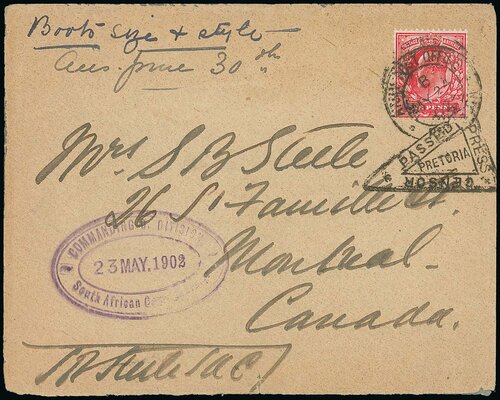 Boots size & style
Ans. June 30th
PENNY
ARMY
MY 22
PASSED
PRESS
PRETORIA
CENSOR
Mrs S B Steele
26 St Famille St.
Montreal
Canada.
COMMANDING DIVISION
23 MAY. 1902
South African
SB Steele